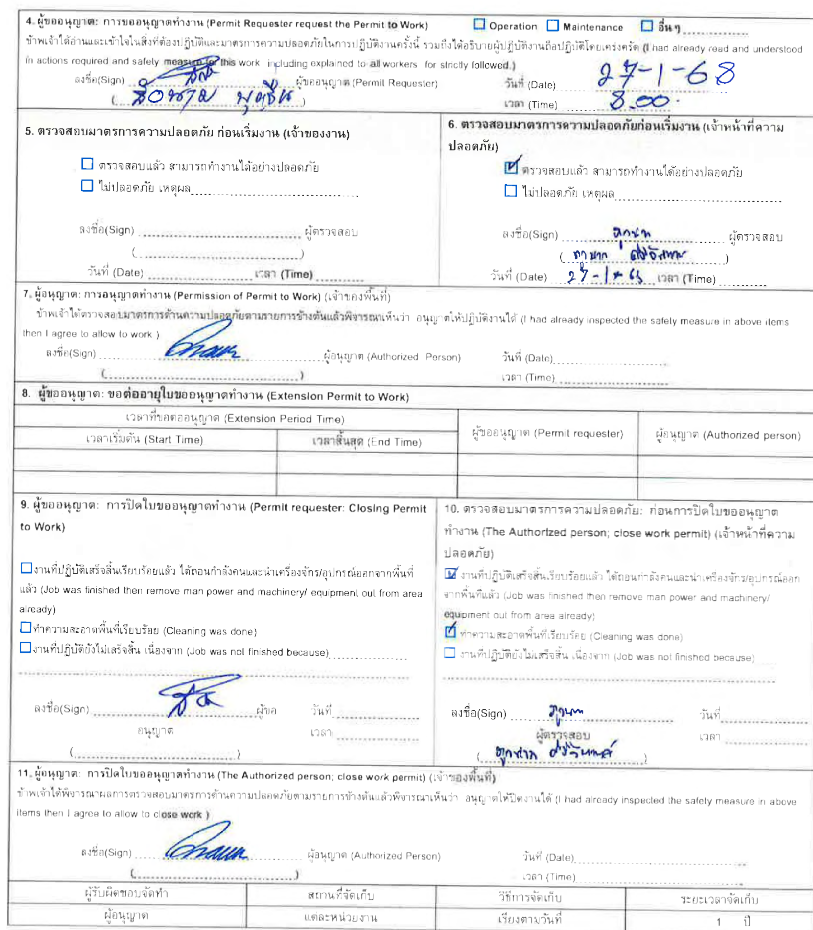 4. ผู้ขออนุญาต: การขออนุญาตทำงาน (Permit Requester request the Permit to Work) ☐ Operation ☐ Maintenance ☐ อื่นๆ
ข้าพเจ้าได้อ่านและเข้าใจในสิ่งที่ต้องปฏิบัติและมาตรการความปลอดภัยในการปฏิบัติงานครั้งนี้ รวมถึงได้อธิบายผู้ปฏิบัติงานถือปฏิบัติโดยเคร่งครัด (I had already read and understood
in actions required and safety measure for this work including explained to all workers for strictly followed.)
ลงชื่อ(Sign) ผู้ขออนุญาต (Permit Requester) วันที่ (Date) 27-1-68
( ) เวลา (Time) 8.00
5. ตรวจสอบมาตรการความปลอดภัย ก่อนเริ่มงาน (เจ้าของงาน)
☐ ตรวจสอบแล้ว สามารถทำงานได้อย่างปลอดภัย
☐ ไม่ปลอดภัย เหตุผล
ลงชื่อ(Sign) ผู้ตรวจสอบ
( )
วันที่ (Date) เวลา (Time)
6. ตรวจสอบมาตรการความปลอดภัยก่อนเริ่มงาน (เจ้าหน้าที่ความ
ปลอดภัย)
☑ ตรวจสอบแล้ว สามารถทำงานได้อย่างปลอดภัย
☐ ไม่ปลอดภัย เหตุผล
ลงชื่อ(Sign) ผู้ตรวจสอบ
( )
วันที่ (Date) 27-1-68 เวลา (Time)
7. ผู้อนุญาต: การอนุญาตทำงาน (Permission of Permit to Work) (เจ้าของพื้นที่)
ข้าพเจ้าได้ตรวจสอบมาตรการด้านความปลอดภัยตามรายการข้างต้นแล้วพิจารณาเห็นว่า อนุญาตให้ปฏิบัติงานได้ (I had already inspected the safety measure in above items
then I agree to allow to work )
ลงชื่อ(Sign) ผู้อนุญาต (Authorized Person) วันที่ (Date)
( ) เวลา (Time)
8. ผู้ขออนุญาต: ขอต่ออายุใบขออนุญาตทำงาน (Extension Permit to Work)
เวลาที่ขอต่ออนุญาต (Extension Period Time) ผู้ขออนุญาต (Permit requester) ผู้อนุญาต (Authorized person)
เวลาเริ่มต้น (Start Time) เวลาสิ้นสุด (End Time)
9. ผู้ขออนุญาต: การปิดใบขออนุญาตทำงาน (Permit requester: Closing Permit
to Work)
☐ งานที่ปฏิบัติเสร็จสิ้นเรียบร้อยแล้ว ได้ถอนกำลังคนและนำเครื่องจักร/อุปกรณ์ออกจากพื้นที่
แล้ว (Job was finished then remove man power and machinery/ equipment out from area
already)
☐ ทำความสะอาดพื้นที่เรียบร้อย (Cleaning was done)
☐ งานที่ปฏิบัติยังไม่เสร็จสิ้น เนื่องจาก (Job was not finished because)
ลงชื่อ(Sign) ผู้ขอ วันที่
อนุญาต เวลา
( )
10. ตรวจสอบมาตรการความปลอดภัย: ก่อนการปิดใบขออนุญาต
ทำงาน (The Authorized person; close work permit) (เจ้าหน้าที่ความ
ปลอดภัย)
☑ งานที่ปฏิบัติเสร็จสิ้นเรียบร้อยแล้ว ได้ถอนกำลังคนและนำเครื่องจักร/อุปกรณ์ออก
จากพื้นที่แล้ว (Job was finished then remove man power and machinery/
equipment out from area already)
☑ ทำความสะอาดพื้นที่เรียบร้อย (Cleaning was done)
☐ งานที่ปฏิบัติยังไม่เสร็จสิ้น เนื่องจาก (Job was not finished because)
ลงชื่อ(Sign) วันที่
ผู้ตรวจสอบ เวลา
( )
11. ผู้อนุญาต: การปิดใบขออนุญาตทำงาน (The Authorized person; close work permit) (เจ้าของพื้นที่)
ข้าพเจ้าได้พิจารณาผลการตรวจสอบมาตรการด้านความปลอดภัยตามรายการข้างต้นแล้วพิจารณาเห็นว่า อนุญาตให้ปิดงานได้ (I had already inspected the safety measure in above
items then I agree to allow to close work )
ลงชื่อ(Sign) ผู้อนุญาต (Authorized Person) วันที่ (Date)
( ) เวลา (Time)
ผู้รับผิดชอบจัดทำ สถานที่จัดเก็บ วิธีการจัดเก็บ ระยะเวลาจัดเก็บ
ผู้อนุญาต แต่ละหน่วยงาน เรียงตามวันที่ 1 ปี